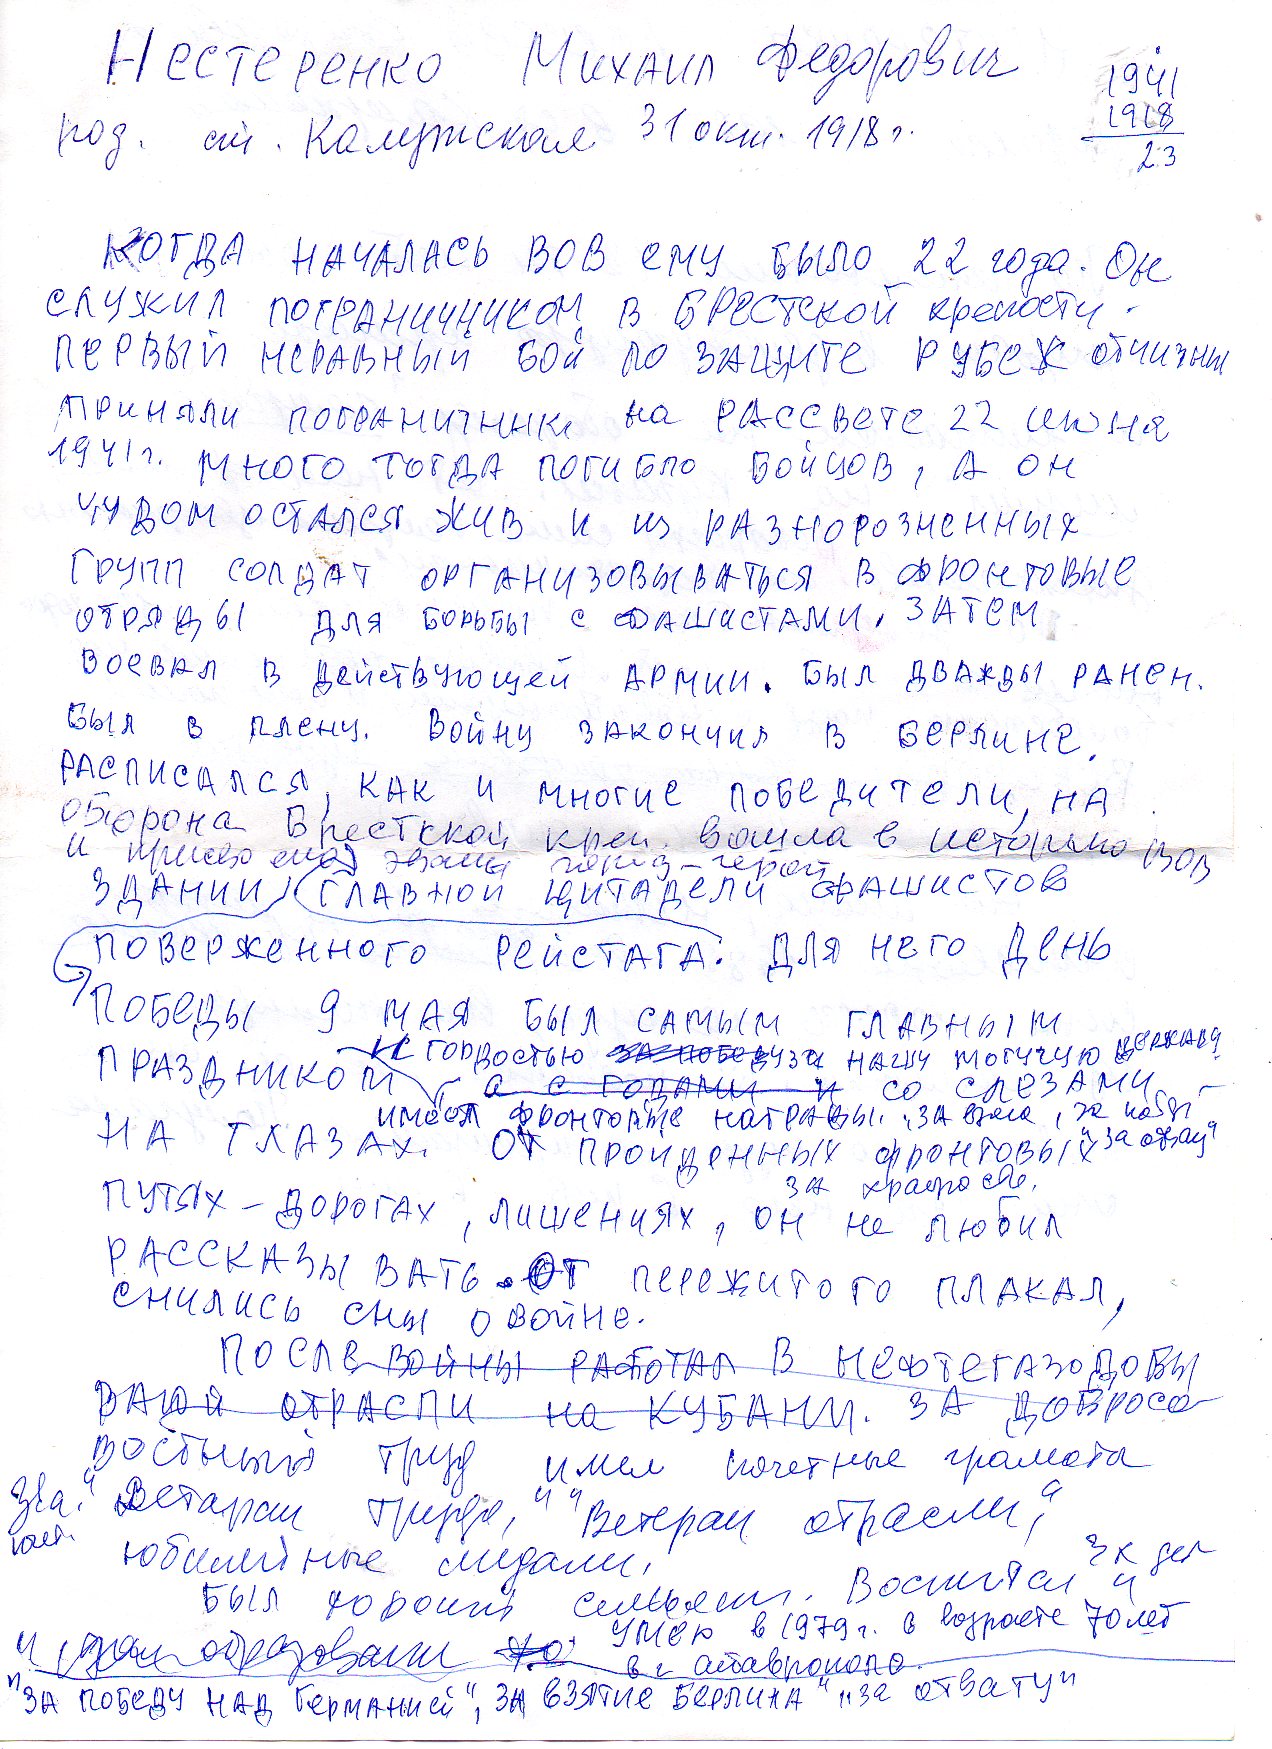 Нестеренко Михаил Федорович
1941
1918
23
род. ст. Калужская 31 окт. 1918 г.
Когда началась ВОВ ему было 22 года. Он
служил пограничником в Брестской крепости.
Первый неравный бой по защите рубеж отчизны
приняли пограничник на рассвете 22 июня
1941 г. Много тогда погибло бойцов, а он
чудом остался жив и из разнорозненных
групп солдат организовываться в фронтовые
отряды для борьбы с фашистами. Затем
воевал в действующей армии. Был дважды ранен.
Был в плену. Войну закончил в Берлине.
Расписался, как и многие победители, на
Оборона Брестской креп. вошла в историю ВОВ
и звание город-герой
здании главной цитадели фашистов
поверженного рейстага. Для него День
Победы 9 мая был самым главным
и гордостью за победу за нашу могучую державу
праздником а с годами и со слезами
имеет фронтовые награды.
на глазах. От пройденных фронтовых "за отвагу"
за храбрость.
путях-дорогах, лишениях, он не любил
рассказывать. От пережитого плакал,
снились сны о войне.
После войны работал в нефтегазодобы
вающ отрасли на Кубани. За добросо
востный труд имел почетные грамота
"Ветаран труда," "Ветеран отрасли,"
юбилейные медали.
3х дет
Был хороший семьянин. Воспитал и
и дал образование
Умер в 1979 г. в возрасте 70 лет
в г. Ставрополе.
"За победу над Германией", "За взятие Берлина" "за отвагу"